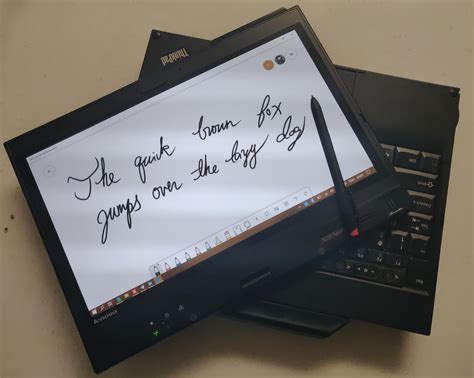 ThinkPad
The quick brown fox
jumps over the lazy dog
lenovo